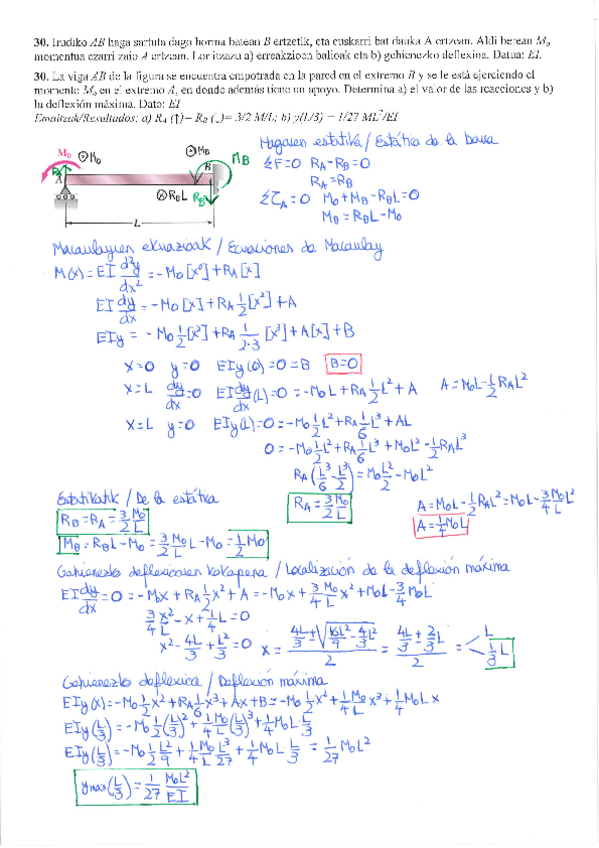 30. Irudiko AB haga sartuta dago horma batean B ertzetik, eta euskarri bat dauka A ertzean. Aldi berean Mo
momentua ezarri zaio A ertzean. Lor itzazu a) erreakzioen balioak eta b) gehienezko deflexioa. Datua: EI.
30. La viga AB de la figura se encuentra empotrada en la pared en el extremo B y se le está ejerciendo el
momento Mo en el extremo A, en donde además tiene un apoyo. Determina a) el valor de las reacciones y b)
la deflexión máxima. Dato: EI
Emaitzak/Resultados: a) RA (↑)= RB (↓)= 3/2 M/L; b) y(L/3) = 1/27 ML²/EI
Hagaren estatika / Estática de la barra
ΣF=0 RA-RB=0
RA=RB
ΣτA=0 Mo+MB-RBL=0
MB=RBL-Mo
Mo ⊙Mo ⊙MB B MB
RA A ⊗RBL RB
L
Macaulayren ekuazioak / Ecuaciones de Macaulay
M(x)=EI d²y/dx² = -Mo[x⁰]+RA[x]
EI dy/dx = -Mo[x]+RA 1/2[x²]+A
EIy = -Mo 1/2[x²]+RA 1/2·3 [x³]+A[x]+B
x=0 y=0 EIy(0)=0=B B=0
x=L dy/dx=0 EI dy/dx(L)=0=-MoL+RA 1/2 L²+A A=MoL-1/2 RAL²
x=L y=0 EIy(L)=0=-Mo 1/2 L²+RA 1/6 L³+AL
0=-Mo 1/2 L²+RA 1/6 L³+MoL²-1/2 RAL³
RA(L³/6-L³/2)=Mo L²/2-MoL²
Estatikatik / De la estática RA=3/2 Mo/L A=MoL-1/2 RAL²=MoL-3/4 Mo/L L²
RB=RA=3/2 Mo/L A=1/4 MoL
MB=RBL-Mo=3/2 Mo/L L-Mo=1/2 Mo
Gehienezko deflexioaren kokapena / Localización de la deflexión máxima
EI dy/dx=0=-Mox+RA 1/2 x²+A=-Mox+3/4 Mo/L x²+MoL-3/4 MoL
3/4 x²/L-x+1/4 L=0
x²-4L/3+L²/3=0 x=(4L/3±√(16L²/9-4L²/3))/2=(4L/3±2/3 L)/2= L
1/3 L
Gehienezko deflexioa / Deflexión máxima
EIy(x)=-Mo 1/2 x²+RA 1/6 x³+Ax+B=-Mo 1/2 x²+1/4 Mo/L x³+1/4 MoL x
EIy(L/3)=-Mo 1/2(L/3)²+1/4 Mo/L(L/3)³+1/4 MoL·L/3
EIy(L/3)=-Mo 1/2 L²/9+1/4 Mo/L L³/27+1/4 MoL L/3 =1/27 MoL²
ymax(L/3)=1/27 MoL²/EI